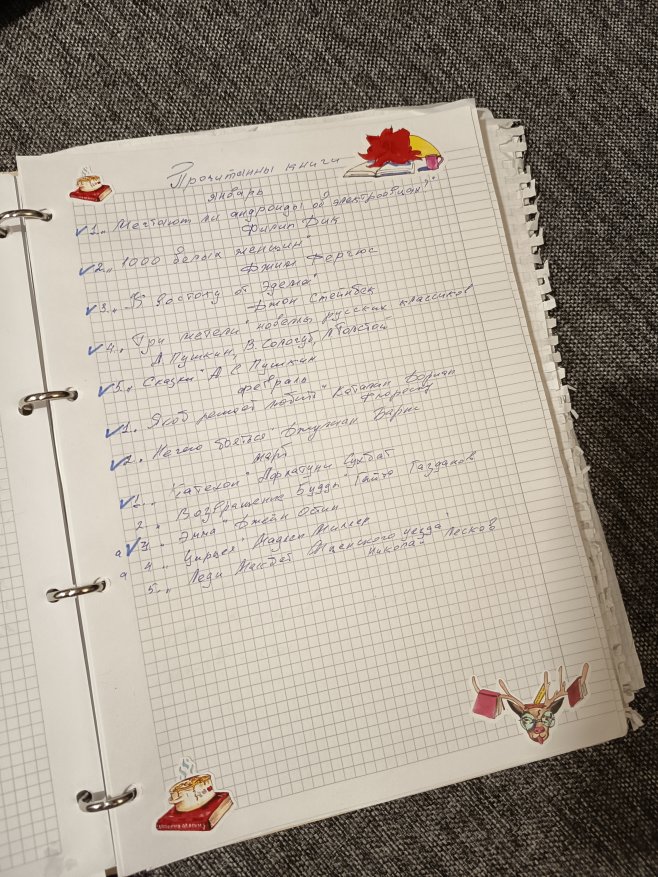 Прочитанны книги
январь
1. „Мечтают ли андроиды об электроовцах?"
Филип Дик
2. „1000 белых женщин"
Джим Фергюс
3. „К востоку от Эдема"
Джон Стейнбек
4. „Три метели" новеллы русских классиков
А Пушкин, В. Сологуб, Л Толстой
5. „Сказки" А С Пушкин
февраль
1. „Якоб решает любить" Каталин Дориан
Флореску
2. „Нечего бояться" Джулиан Барнс
март
1. „Татехон" Афлатуни Сухбат
2 „Возвращение Будды Гайто Газданов
3 „Эмма" Джейн Остин
а 4 „Цирцея" Мадлен Миллер
а 5. „Леди Макбет Мценского уезда
Николай Лесков